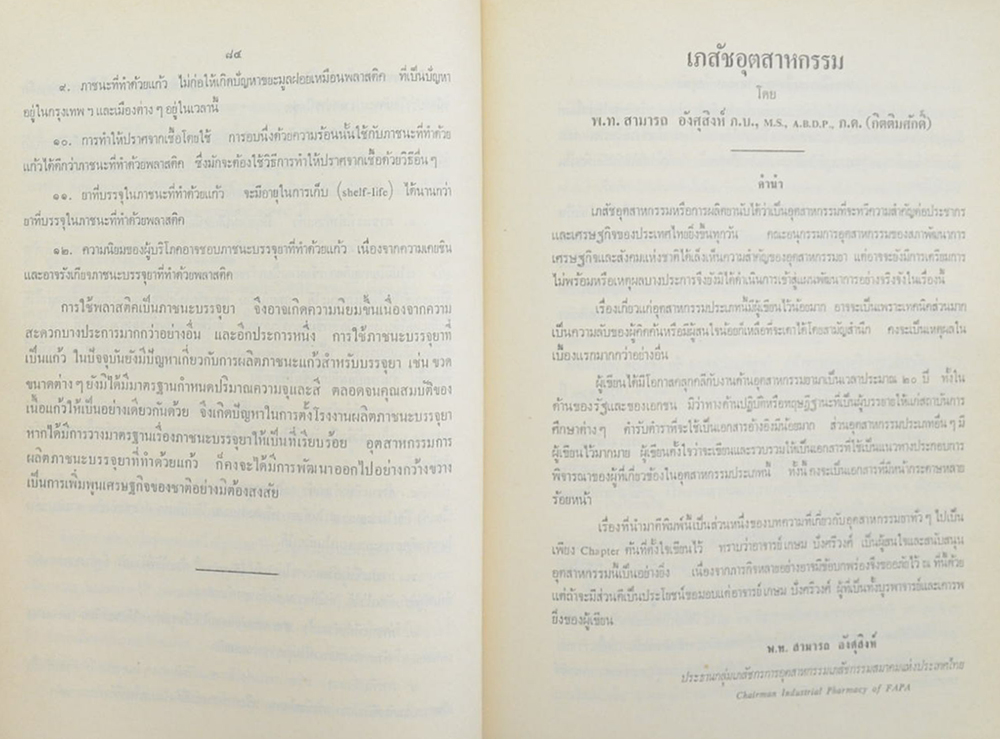 ๘๕
๙. ภาชนะที่ทำด้วยแก้ว ไม่ก่อให้เกิดปัญหาขยะมูลฝอยเหมือนพลาสติค ที่เป็นปัญหา
อยู่ในกรุงเทพ ฯ และเมืองต่าง ๆ อยู่ในเวลานี้
๑๐. การทำให้ปราศจากเชื้อโดยใช้ การอบนึ่งด้วยความร้อนนั้นใช้กับภาชนะที่ทำด้วย
แก้วได้ดีกว่าภาชนะที่ทำด้วยพลาสติค ซึ่งมักจะต้องใช้วิธีการทำให้ปราศจากเชื้อด้วยวิธีอื่น ๆ
๑๑. ยาที่บรรจุในภาชนะที่ทำด้วยแก้ว จะมีอายุในการเก็บ (shelf-life) ได้นานกว่า
ยาที่บรรจุในภาชนะที่ทำด้วยพลาสติค
๑๒. ความนิยมของผู้บริโภคอาจชอบภาชนะบรรจุยาที่ทำด้วยแก้ว เนื่องจากความเคยชิน
และอาจรังเกียจภาชนะบรรจุยาที่ทำด้วยพลาสติค
การใช้พลาสติคเป็นภาชนะบรรจุยา จึงอาจเกิดความนิยมขึ้นเนื่องจากความ
สะดวกบางประการมากกว่าอย่างอื่น และอีกประการหนึ่ง การใช้ภาชนะบรรจุยาที่
เป็นแก้ว ในปัจจุบันยังมีปัญหาเกี่ยวกับการผลิตภาชนะแก้วสำหรับบรรจุยา เช่น ขวด
ขนาดต่าง ๆ ยังมิได้มีมาตรฐานกำหนดปริมาณความจุและสี ตลอดจนคุณสมบัติของ
เนื้อแก้วให้เป็นอย่างเดียวกันด้วย จึงเกิดปัญหาในการตั้งโรงงานผลิตภาชนะบรรจุยา
หากได้มีการวางมาตรฐานเรื่องภาชนะบรรจุยาให้เป็นที่เรียบร้อย อุตสาหกรรมการ
ผลิตภาชนะบรรจุยาที่ทำด้วยแก้ว ก็คงจะได้มีการพัฒนาออกไปอย่างกว้างขวาง
เป็นการเพิ่มพูนเศรษฐกิจของชาติอย่างมิต้องสงสัย
เภสัชอุตสาหกรรม
โดย
พ.ท. สามารถ อังศุสิงห์ ภ.บ., M.S., A.B.D.P., ภ.ด. (กิตติมศักดิ์)
คำนำ
เภสัชอุตสาหกรรมหรือการผลิตยานับได้ว่าเป็นอุตสาหกรรมที่จะทวีความสำคัญต่อประชากร
และเศรษฐกิจของประเทศไทยยิ่งขึ้นทุกวัน คณะอนุกรรมการอุตสาหกรรมของสภาพัฒนาการ
เศรษฐกิจและสังคมแห่งชาติได้เล็งเห็นความสำคัญของอุตสาหกรรมยา แต่อาจจะยังมีการเตรียมการ
ไม่พร้อมหรือเหตุผลบางประการจึงยังมิได้ดำเนินการเข้าสู่แผนพัฒนาการอย่างจริงจังในเรื่องนี้
เรื่องเกี่ยวแก่อุตสาหกรรมประเภทนี้มีผู้เขียนไว้น้อยมาก อาจจะเป็นเพราะเทคนิคส่วนมาก
เป็นความลับของผู้คิดค้นหรือมีผู้สนใจน้อยก็เหลือที่จะเดาได้โดยสามัญสำนึก คงจะเป็นเหตุผลใน
เบื้องแรกมากกว่าอย่างอื่น
ผู้เขียนได้มีโอกาสคลุกคลีกับงานด้านอุตสาหกรรมยามาเป็นเวลาประมาณ ๒๐ ปี ทั้งใน
ด้านของรัฐและของเอกชน มิว่าทางด้านปฏิบัติหรือทฤษฎีฐานะที่เป็นผู้บรรยายให้แก่สถาบันการ
ศึกษาต่าง ๆ ตำรับตำราที่จะใช้เป็นเอกสารอ้างอิงมีน้อยมาก ส่วนอุตสาหกรรมประเภทอื่น ๆ มี
ผู้เขียนไว้มากมาย ผู้เขียนตั้งใจว่าจะเขียนและรวบรวมให้เป็นเอกสารที่ใช้เป็นแนวทางประกอบการ
พิจารณาของผู้ที่เกี่ยวข้องในอุตสาหกรรมประเภทนี้ ทั้งนี้ คงจะเป็นเอกสารที่มีหน้ากระดาษหลาย
ร้อยหน้า
เรื่องที่นำมาตีพิมพ์นี้เป็นส่วนหนึ่งของบทความที่เกี่ยวกับอุตสาหกรรมยาทั่ว ๆ ไปเป็น
เพียง Chapter ต้นที่ตั้งใจเขียนไว้ ทราบว่าอาจารย์ เกษม บึงศรีวงศ์ เป็นผู้สนใจและสนับสนุน
อุตสาหกรรมนี้เป็นอย่างยิ่ง เนื่องจากภารกิจหลายอย่างอาจมีข้อบกพร่องจึงขออภัยไว้ ณ ที่นี้ด้วย
แต่ถ้าจะมีส่วนดีเป็นประโยชน์ขอมอบแด่อาจารย์ เกษม บึงศรีวงศ์ ผู้ที่เป็นทั้งบุรพาจารย์และเคารพ
ยิ่งของผู้เขียน
พ.ท. สามารถ อังศุสิงห์
ประธานกลุ่มเภสัชกรการอุตสาหกรรมเภสัชกรรมสมาคมแห่งประเทศไทย
Chairman Industrial Pharmacy of FAPA